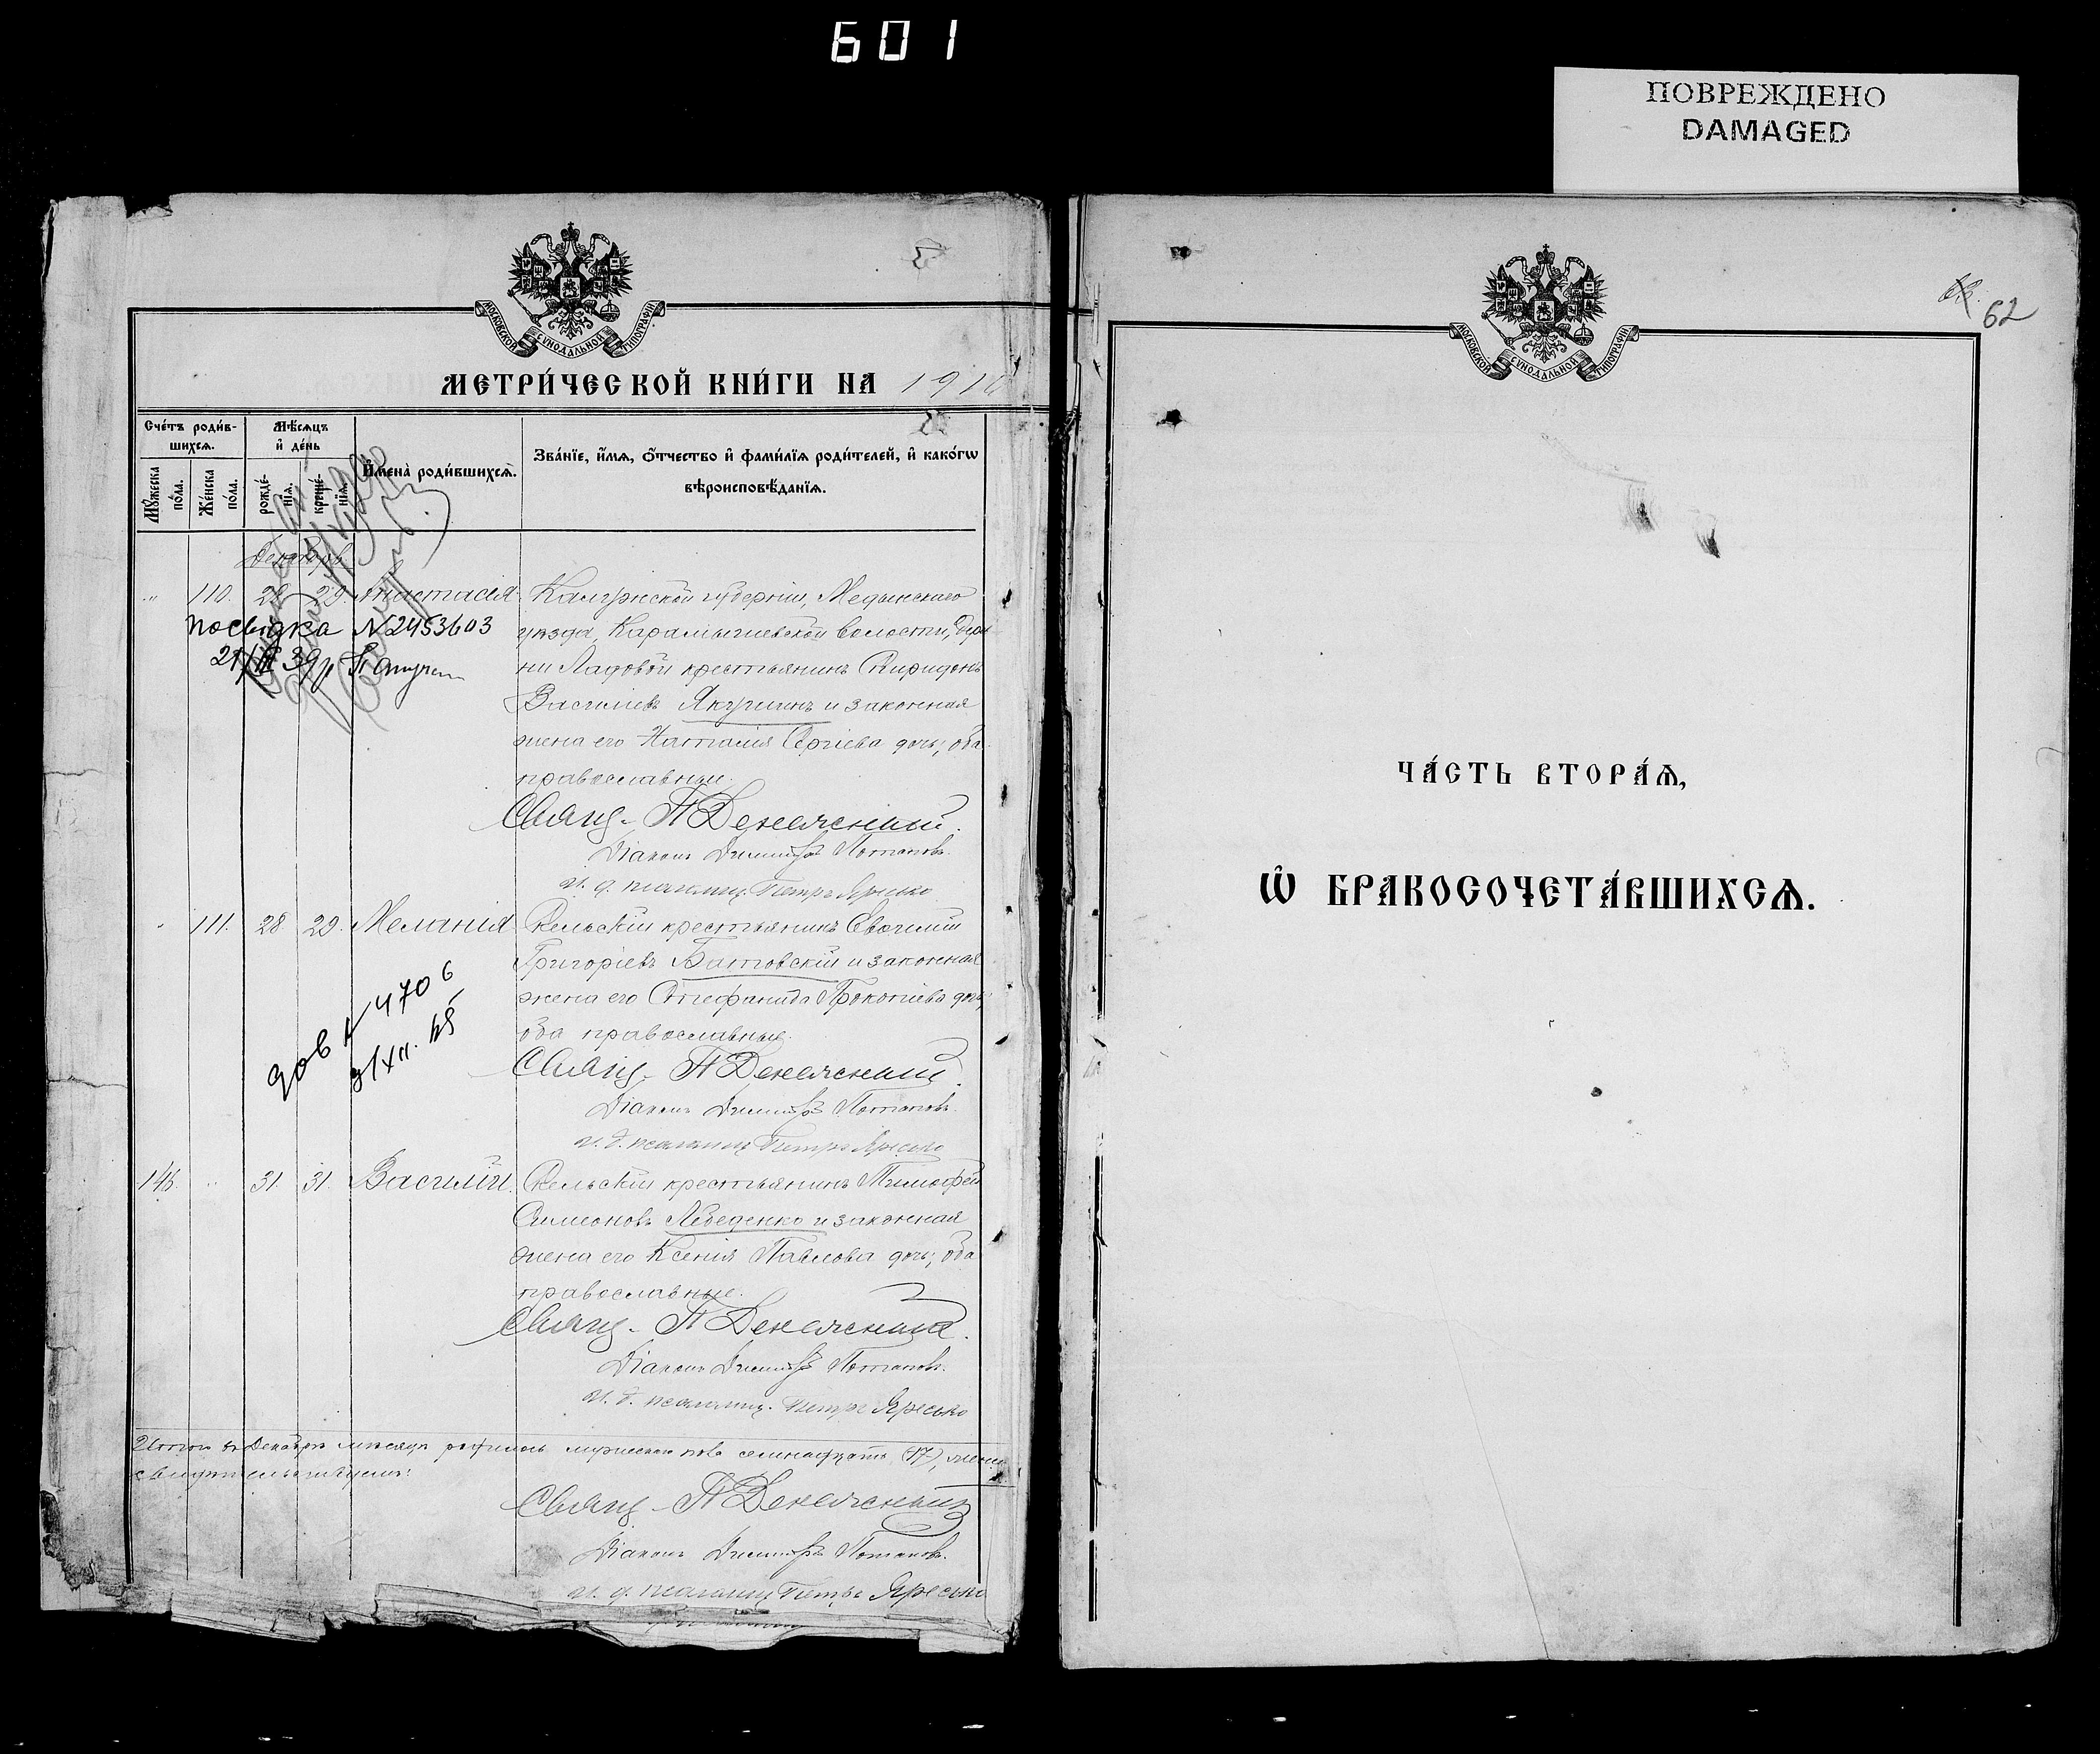 601
ПОВРЕЖДЕНО
DAMAGED
МОСКОВСКОЙ СѴНОДАЛЬНОЙ ТИПОГРАФІИ
МЕТРИ́ЧЕСКОЙ КНИ́ГИ НА 1910
Сче́тъ роди́в-
шихсѧ.
Мѣ́сѧцъ
и҆ де́нь
Мꙋ́жеска по́ла.
Же́нска по́ла.
рожде́-нїѧ.
креще́-нїѧ.
И҆мена̀ роди́вшихсѧ.
Зва́нїе, и҆́мѧ, ѻ҆́тчество и҆ фамѝлїѧ роди́телей, и҆ како́гѡ
вѣроисповѣ́данїѧ.
Декабрь
110. 28 29. Анастасія Калужской губерніи, Медынскаго
посвідка N 2453603 уѣзда, Карамышевской волости, дерев
21/ 39р ни Ладовой крестьянинъ Спиридонъ
Василіевъ Якушинъ и законная
жена его Наталія Сергіева дочь; оба
православные.
Свящ. П Денежскій
Діаконъ Димитрій Потаповъ.
И. д. псаломщ. Петръ Яресько
111. 28 29. Меланія крестьянинъ
Григоріевъ Батовскій и законная
жена его Стефанида Прокопіева дочь;
оба православные.
4706
Свящ. П Денежскій
Діаконъ Димитрій Потаповъ.
И. д. псаломщ. Петръ Яресько
146. 31. 31. Василій крестьянинъ Тимофей
Симеоновъ Лебеденко и законная
жена его Ксенія Павлова дочь; оба
православные.
Свящ. П Денежскій
Діаконъ Димитрій Потаповъ.
И. д. псаломщ. Петръ Яресько
Итого въ Декабрѣ мѣсяцѣ родилось мужеска пола семнадцать (17),
свидѣтельствуемъ:
Свящ. П Денежскій
Діаконъ Димитрій Потаповъ.
И. д. псаломщ. Петръ Яресько
62
МОСКОВСКОЙ СѴНОДАЛЬНОЙ ТИПОГРАФІИ
ЧА́СТЬ ВТОРА́Ѧ,
Ѡ҆ БРАКОСОЧЕТА́ВШИХСѦ.